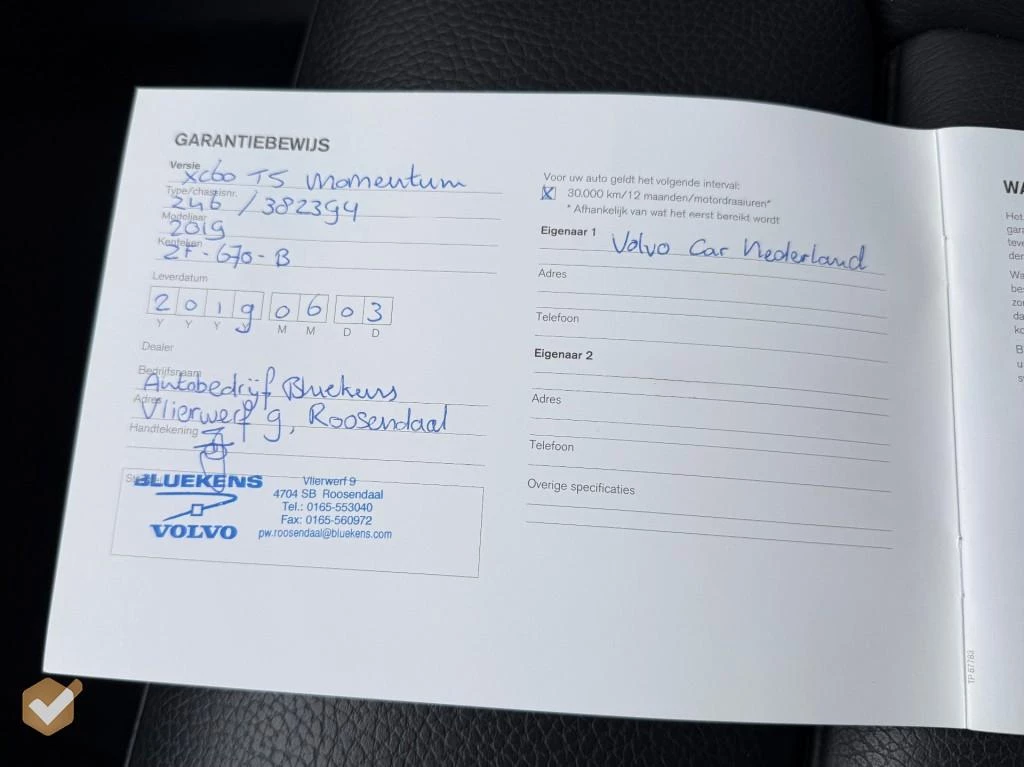 GARANTIEBEWIJS
Versie
XC60 T5 Momentum
Type/chassisnr.
246 / 382394
Modeljaar
2019
Kenteken
ZF-670-B
Leverdatum
2 0 1 9 0 6 0 3
Y Y Y Y M M D D
Dealer
Bedrijfsnaam
Autobedrijf Bluekens
Adres
Vlierwerf 9, Roosendaal
Handtekening
BLUEKENS
VOLVO
Vlierwerf 9
4704 SB Roosendaal
Tel.: 0165-553040
Fax: 0165-560972
pw.roosendaal@bluekens.com
Voor uw auto geldt het volgende interval:
X 30.000 km/12 maanden/motordraaiuren*
* Afhankelijk van wat het eerst bereikt wordt
Eigenaar 1 Volvo Car Nederland
Adres
Telefoon
Eigenaar 2
Adres
Telefoon
Overige specificaties
TP 67783
WA
Het
gara
teve
der
Wa
bes
zor
da
ko
B
u
s